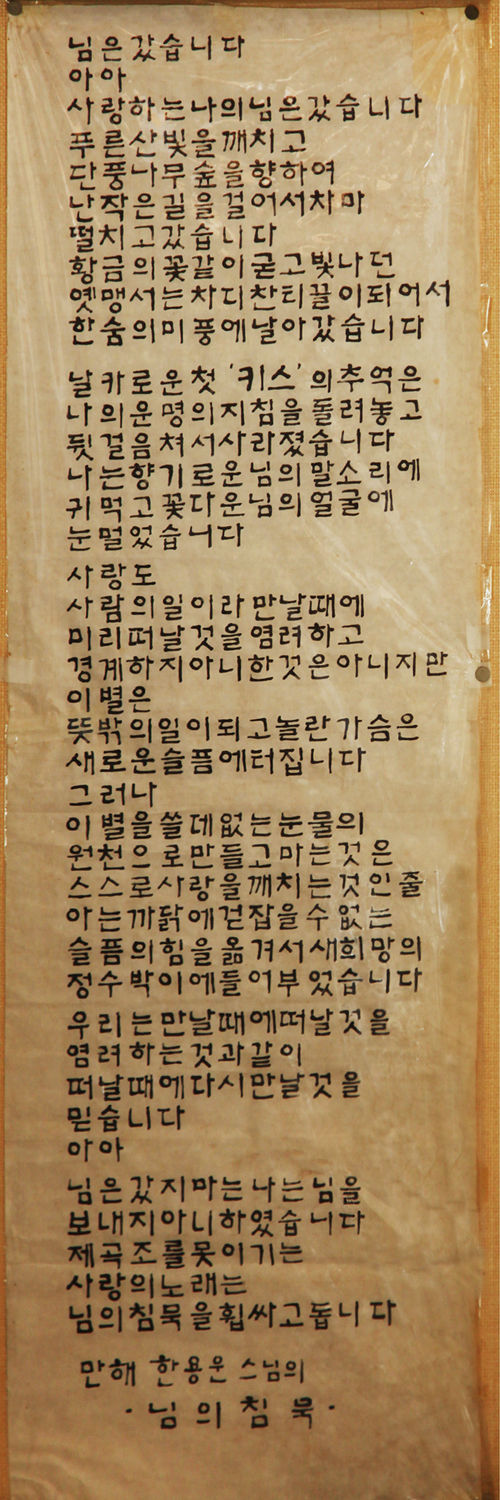 님은갔습니다
아아
사랑하는나의님은갔습니다
푸른산빛을깨치고
단풍나무숲을향하여
난작은길을걸어서차마
떨치고갔습니다
황금의꽃같이굳고빛나던
옛맹서는차디찬티끌이되어서
한숨의미풍에날아갔습니다
날카로운첫 '키스'의추억은
나의운명의지침을돌려놓고
뒷걸음쳐서사라졌습니다
나는향기로운님의말소리에
귀먹고꽃다운님의얼굴에
눈멀었습니다
사랑도
사람의일이라만날때에
미리떠날것을염려하고
경계하지아니한것은아니지만
이별은
뜻밖의일이되고놀란가슴은
새로운슬픔에터집니다
그러나
이별을쓸데없는눈물의
원천으로만들고마는것은
스스로사랑을깨치는것인줄
아는까닭에걷잡을수없는
슬픔의힘을옮겨서새희망의
정수박이에들어부었습니다
우리는만날때에떠날것을
염려하는것과같이
떠날때에다시만날것을
믿습니다
아아
님은갔지마는나는님을
보내지아니하였습니다
제곡조를못이기는
사랑의노래는
님의침묵을휩싸고돕니다
만해 한용운 스님의
·님의침묵·